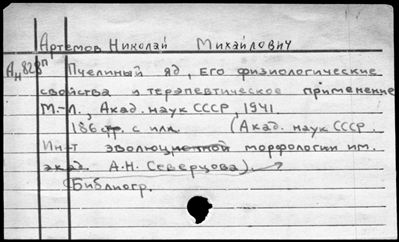 Артемов Николай Михайлович
Ан828п Пчелиный яд, Его физиологические
свойства и терапевтическое применение
М.-Л., Акад. наук СССР, 1941.
186 с илл. (Акад. наук СССР.
Ин-т эволюционной морфологии им.
акад. А.Н. Северцова)
(Библиогр.